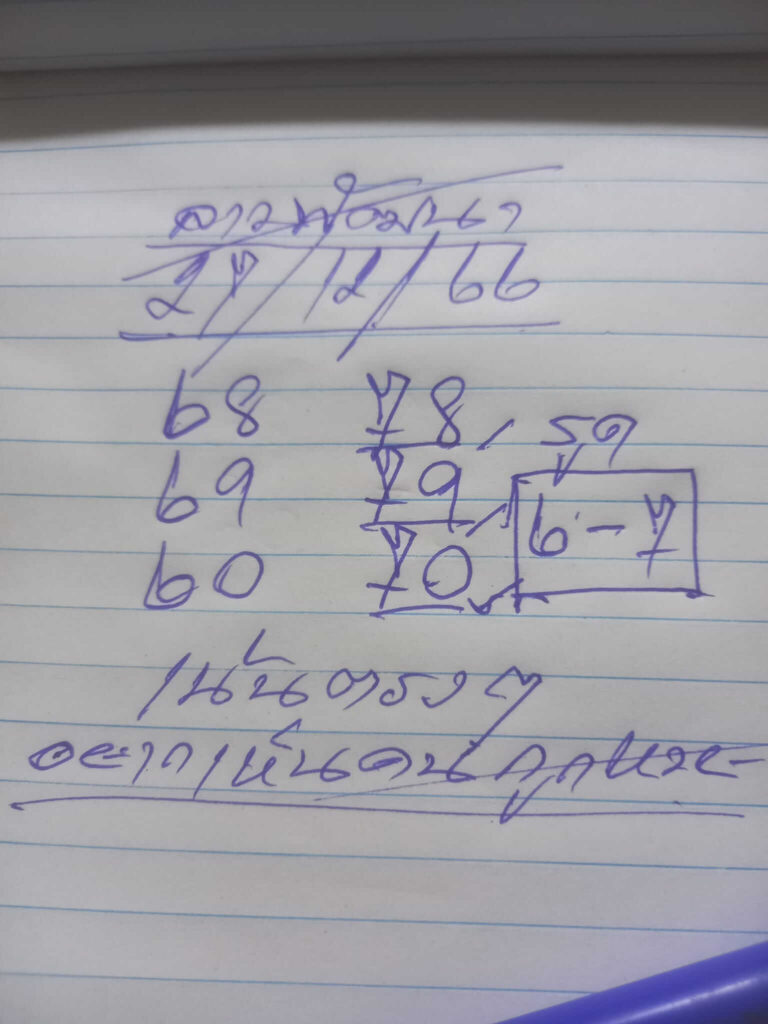 ลาวพัฒนา
27/12/66
68 78 รูด
69 79 6-7
60 70
เน้นตรงๆ
อยากเห็นคนถูกหวย